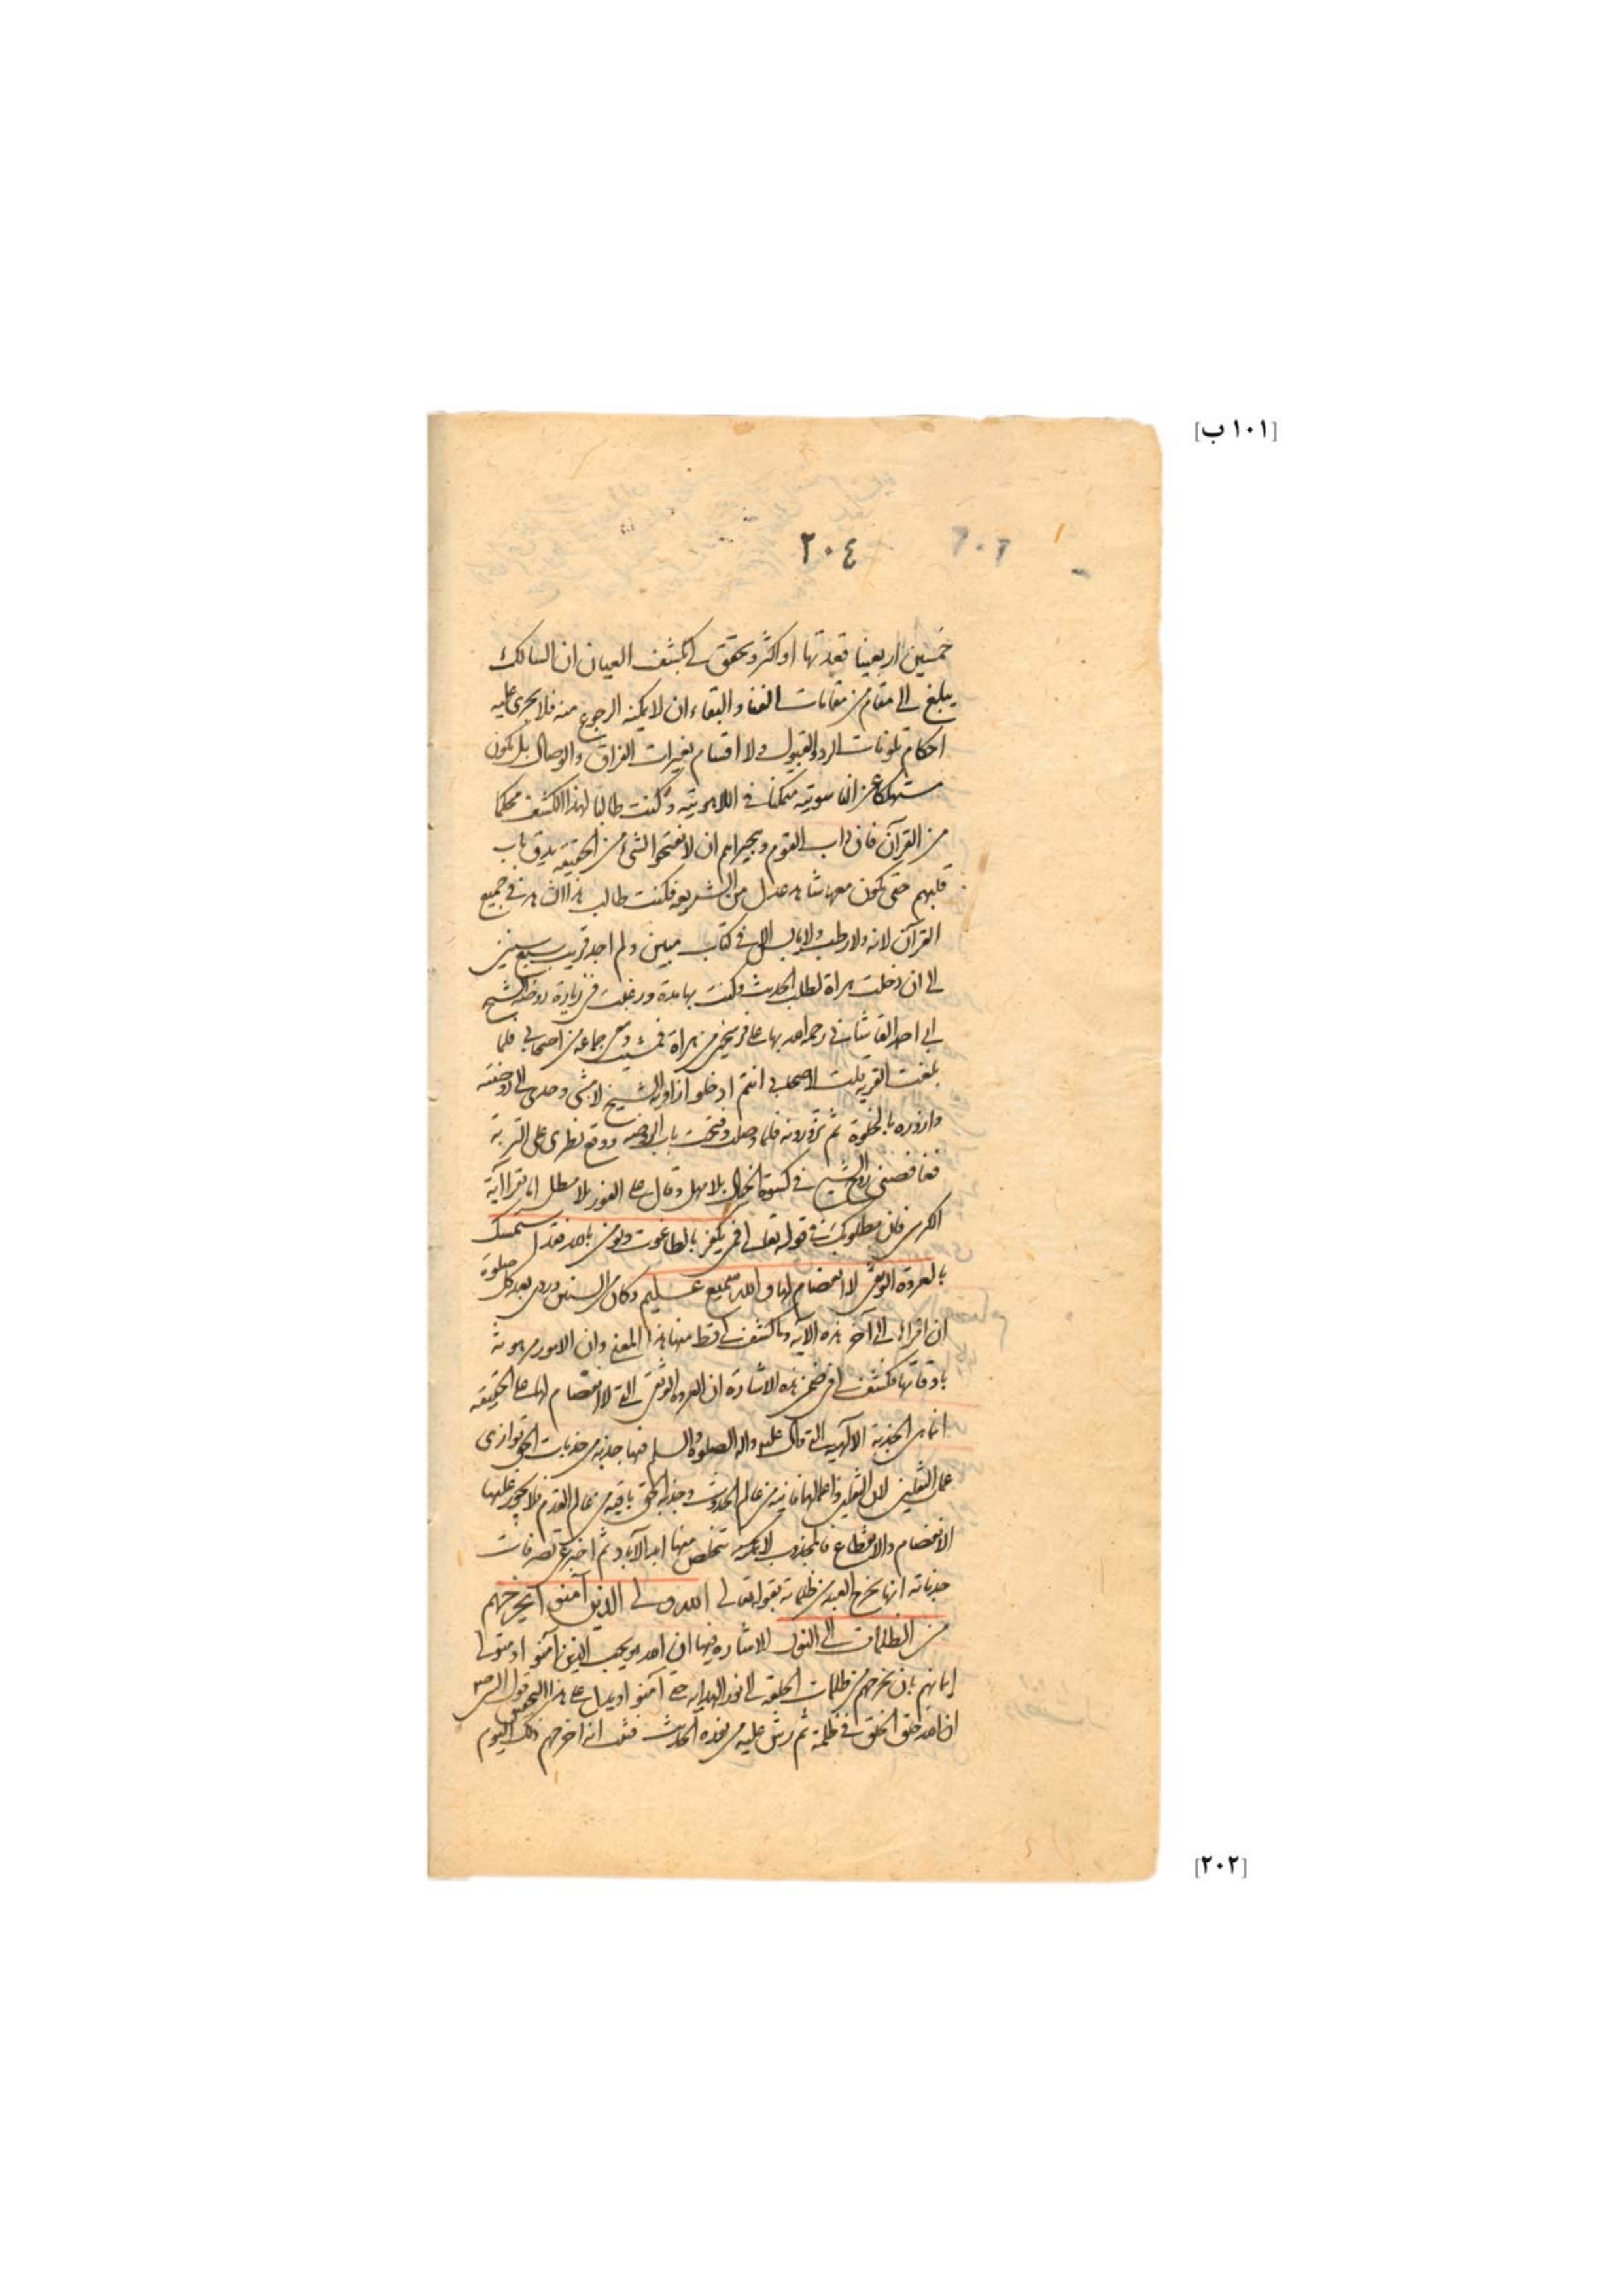 [١٠١ ب]
٢٠٤
خمسين اربعينا قعدتها او اكثر و تحقق لي بكشف العيان ان السالك
يبلغ الى مقام من مقامات الفناء و البقاء ان لا يمكنه الرجوع منه فلا يجرى عليه
احكام تلونات الرد و القبول و لا اقسام تغيرات الفراق و الوصال بل يكون
مستهلكا عن الناسوتيه متمكنا في اللاهوتيه و كنت طالبا لهذا الكشف محكما
من القرآن فان داب القوم و هجيراهم ان لا يفتحوا لشئ من الحقيقه يدق باب
قلبهم حتى يكون معها شاهد عدل من الشريعه فكنت طالب هذا الشاهد في جميع
القرآن لانه و لا رطب و لا يابس الا في كتاب مبين و لم اجد قريب سبع سنين
الى ان دخلت هراة لطلب الحديث و كنت بها مدة و رغبت في زيارة روضة الشيخ
ابي احمد رحمه الله بها على فرسخين من هراة فمشيت و معى جماعة من اصحابي فلما
بلغت القريه قلت لاصحابي انتم ادخلوا زاوية الشيخ لامشى وحدى الى الروضه
و ازوره بالخلوة ثم تزورونه فلما وصلت و فتحت باب الروضه و وقع نظرى على التربة
فغافصنى روح الشيخ في كسوة الخيال بلا مهل و قال على الفور بلا مطل اما تقرا آية
الكرسى فان مطلوبك في قوله تعالى فمن يكفر بالطاغوت و يومن بالله فقد استمسك
بالعروة الوثقى لا انفصام لها و الله سميع عليم و كان من السنين وردى بعد كل صلوة
ان اقراء الى آخر هذه الآية و ما كشف لي قط منها هذا المعنى و ان الامور مرهونة
باوقاتها فكشف لي في ضمن هذه الاشارة ان العروة الوثقى التى لا انفصام لها على الحقيقه
انما هي الجذبة الالهيه التى قال عليه و اله الصلوة و السلم فيها جذبة من جذبات الحق توازى
عمل الثقلين لان الثقلين و اعمالها فانية من عالم الحدوث و جذبة الحق باقيه من عالم القدم فلا يجوز عليها
الانفصام و الانقطاع فالمجذوب لا يمكنه تخلص منها ابد الآباد ثم اخبر عن تصرفات
جذباته انها تخرج العبد من ظلماته بقوله تعالى الله ولى الذين آمنوا يخرجهم
من الظلمات الى النور الاشارة فيها ان الله هو يحب الذين آمنوا و متولى
ايمانهم بان يخرجهم من ظلمات الخلقه الى نور الهدايه حتى آمنوا على هذا التحقيق قول النبي
ان الله خلق الخلق في ظلمة ثم رش عليهم من نوره الحديث انه اخرجهم ذلك اليوم
[٢٠٢]